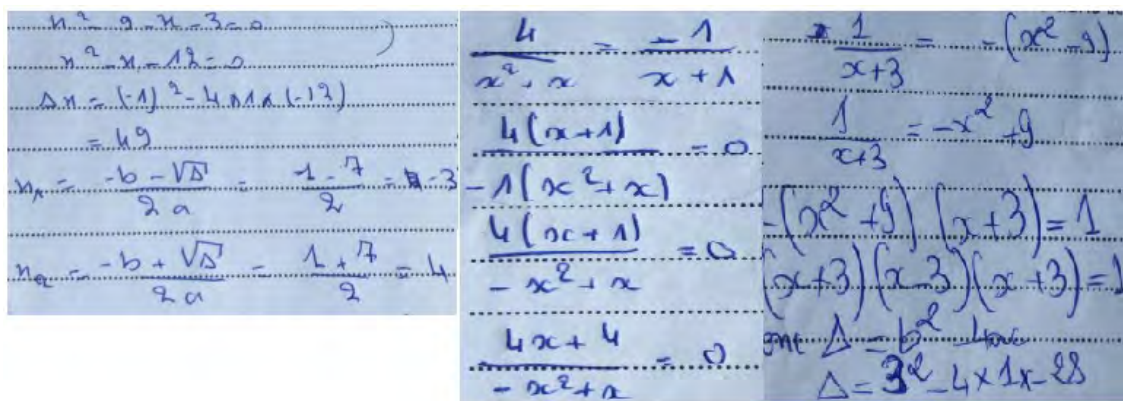 x² - 9 - x - 3 = 0
x² - x - 12 = 0
Δx = (-1)² - 4×1×(-12)
= 49
x₁ = (-b - √Δ)/(2a) = (1 - 7)/2 = -3
x₂ = (-b + √Δ)/(2a) = (1 + 7)/2 = 4
4/(x² + x) = -1/(x + 1)
4(x+1)/(-1(x² + x)) = 0
4(x + 1)/(-x² + x) = 0
(4x + 4)/(-x² + x) = 0
1/(x+3) = -(x² - 9)
1/(x+3) = -x² + 9
-(x² + 9) (x + 3) = 1
(x+3)(x-3)(x+3) = 1
Δ = b² - 4ac
Δ = 3² - 4×1×-28